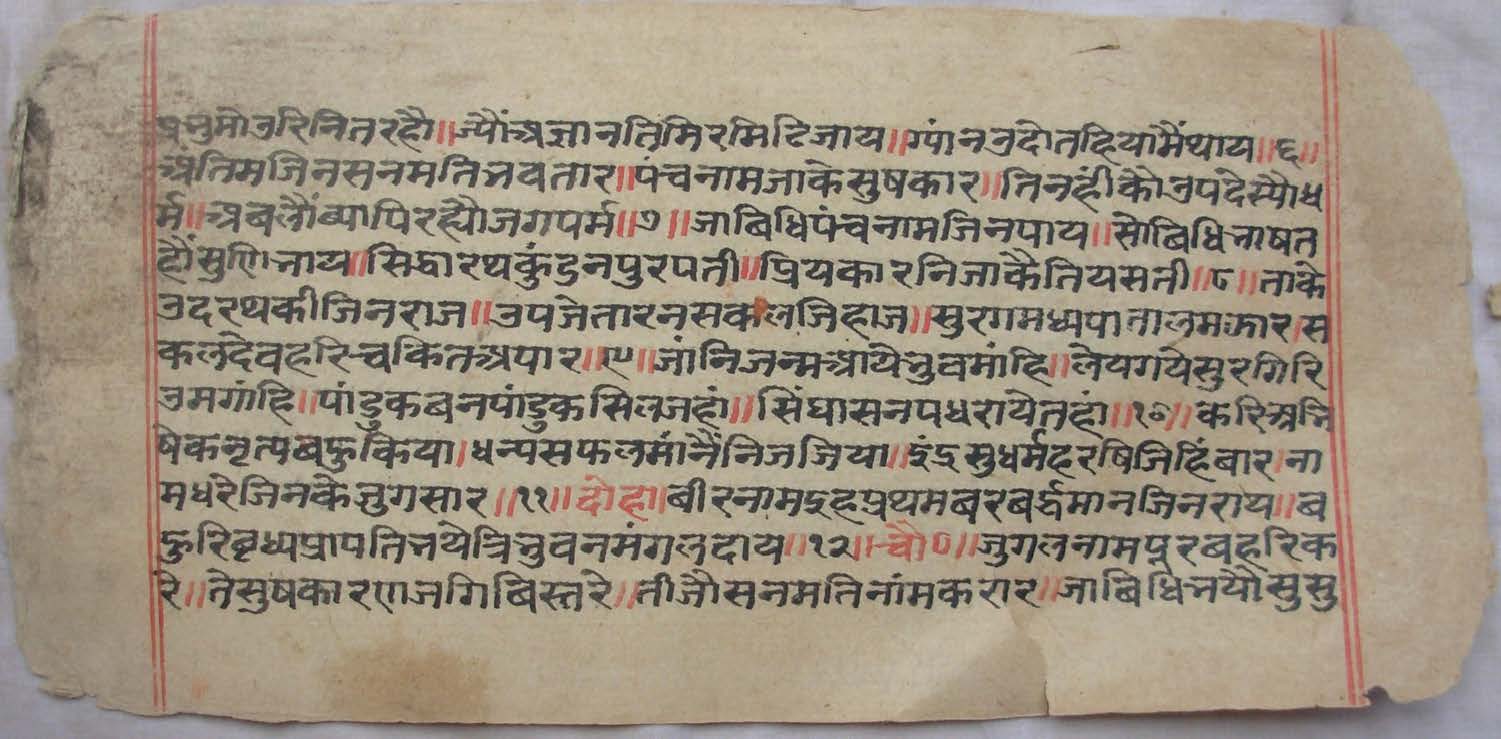 प्रभुमोउरिनितरहौ॥ज्यौंअज्ञानतिमिरमिटिजाय॥ग्यांनउदोतहियामैंथाय॥६॥
अंतिमजिनसनमतिभवतार॥पंचनामजाकेसुषकार॥तिनहींकौउपदेस्यौध
र्म॥अबलौंव्यापिरह्यौजगपर्म॥७॥जाबिधिपंचनामजिनपाय॥सोबिधिभाषत
हौंसुणिभाय॥सिद्धारथकुंडनपुरपती॥प्रियकारनिजाकैतियसती॥८॥ताके
उदरथकीजिनराज॥उपजेतारनसकलजिहाज॥सुरगमध्यपातालमझार।स
कलदेवहरिचकितअपार॥९॥जांनिजन्मआयेभुवमांहि॥लेयगयेसुरगिरि
उमगांहि॥पांडुकबनपांडुकसिलजहां॥सिंघासनपधरायेतहां॥१०॥करिअभि
षेकनृत्यबहुकिया।धन्यसफलमांनैंनिजजिया॥इंद्रसुधर्महरषिजिहिंबार।ना
मधरेजिनकेजुगसार॥११॥दोहा॥बीरनामइहप्रथमबरबर्द्धमानजिनराय॥ब
हुरिबृध्यप्रापतिभयेत्रिभुवनमंगलदाय॥१२॥चौ०॥जुगलनामपूरबहरिक
रे॥तेसुषकारणजगिबिस्तरे॥तीजौसनमतिनांमकरार॥जाबिधिभयौसुसु